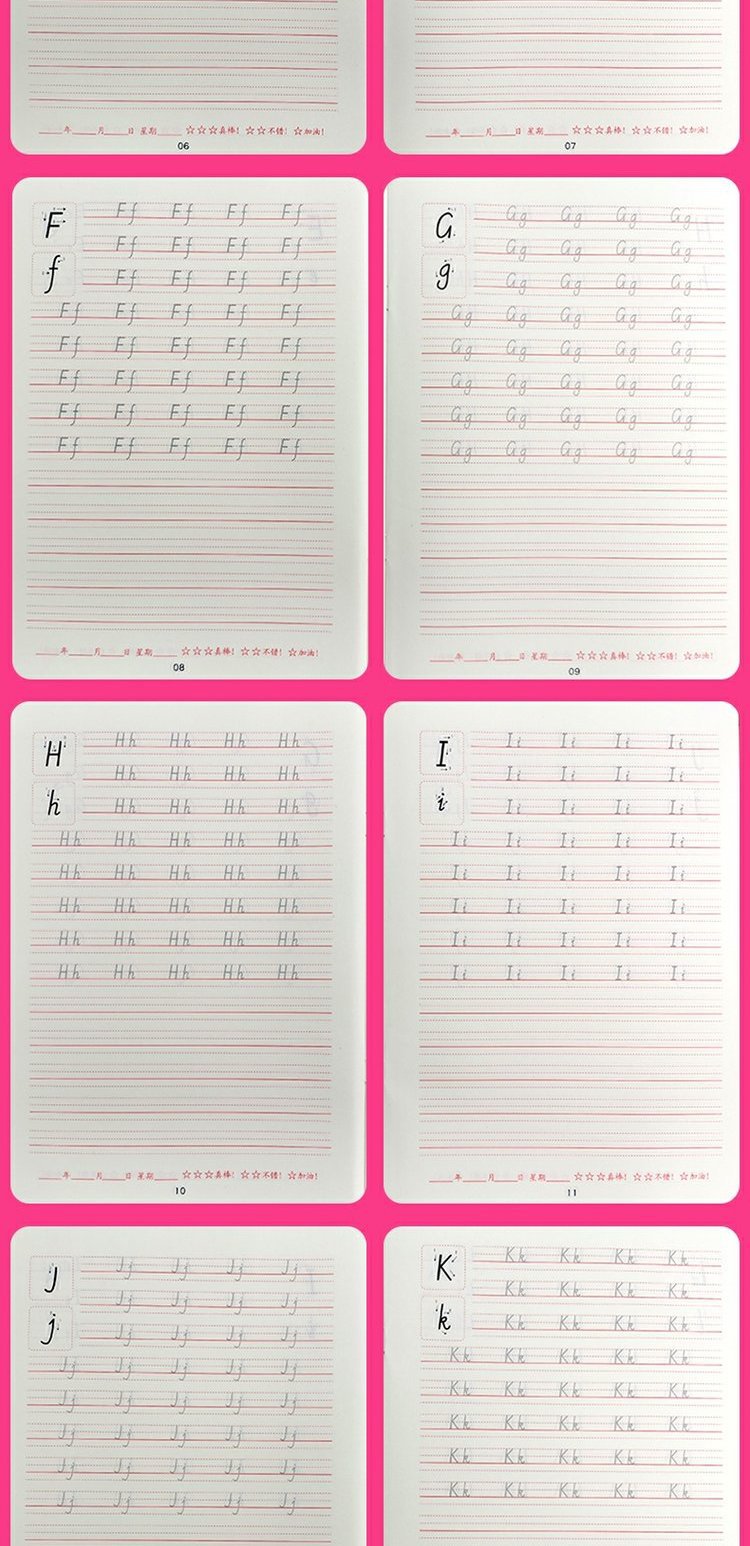 ____年____月____日 星期____ ☆☆☆真棒! ☆☆不错! ☆加油!
06
____年____月____日 星期____ ☆☆☆真棒! ☆☆不错! ☆加油!
07
F Ff Ff Ff Ff
Ff Ff Ff Ff
f Ff Ff Ff Ff
Ff Ff Ff Ff Ff
Ff Ff Ff Ff Ff
Ff Ff Ff Ff Ff
Ff Ff Ff Ff Ff
Ff Ff Ff Ff Ff
____年____月____日 星期____ ☆☆☆真棒! ☆☆不错! ☆加油!
08
G Gg Gg Gg Gg
Gg Gg Gg Gg
g Gg Gg Gg Gg
Gg Gg Gg Gg Gg
Gg Gg Gg Gg Gg
Gg Gg Gg Gg Gg
Gg Gg Gg Gg Gg
Gg Gg Gg Gg Gg
____年____月____日 星期____ ☆☆☆真棒! ☆☆不错! ☆加油!
09
H Hh Hh Hh Hh
Hh Hh Hh Hh
h Hh Hh Hh Hh
Hh Hh Hh Hh Hh
Hh Hh Hh Hh Hh
Hh Hh Hh Hh Hh
Hh Hh Hh Hh Hh
Hh Hh Hh Hh Hh
____年____月____日 星期____ ☆☆☆真棒! ☆☆不错! ☆加油!
10
I Ii Ii Ii Ii
Ii Ii Ii Ii
i Ii Ii Ii Ii
Ii Ii Ii Ii Ii
Ii Ii Ii Ii Ii
Ii Ii Ii Ii Ii
Ii Ii Ii Ii Ii
Ii Ii Ii Ii Ii
____年____月____日 星期____ ☆☆☆真棒! ☆☆不错! ☆加油!
11
J Jj Jj Jj Jj
Jj Jj Jj Jj
j Jj Jj Jj Jj
Jj Jj Jj Jj Jj
Jj Jj Jj Jj Jj
Jj Jj Jj Jj Jj
Jj Jj Jj Jj Jj
Jj Jj Jj Jj Jj
K Kk Kk Kk Kk
Kk Kk Kk Kk
k Kk Kk Kk Kk
Kk Kk Kk Kk Kk
Kk Kk Kk Kk Kk
Kk Kk Kk Kk Kk
Kk Kk Kk Kk Kk
Kk Kk Kk Kk Kk